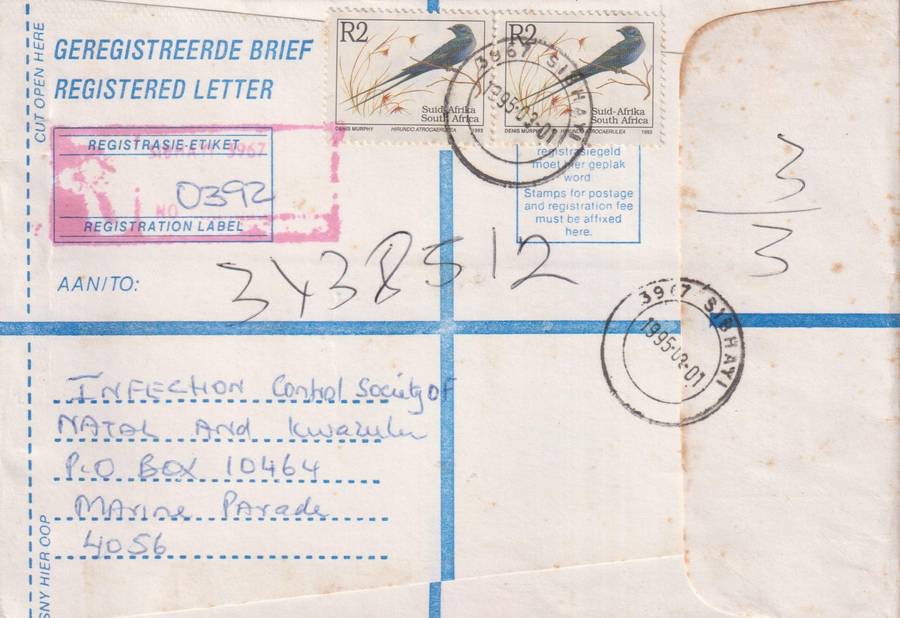 CUT OPEN HERE
GEREGISTREERDE BRIEF
REGISTERED LETTER
R2
Suid-Afrika
South Africa
DENIS MURPHY HIRUNDO ATROCAERULEA 1993
R2
Suid-Afrika
South Africa
DENIS MURPHY HIRUNDO ATROCAERULEA 1993
3967 SIBHAYI
1995-03-01
REGISTRASIE-ETIKET
SIBHAYI 3967
0392
NO
REGISTRATION LABEL
registrasiegeld
moet hier geplak
word
Stamps for postage
and registration fee
must be affixed
here.
3
3
AAN/TO:
3438512
3967 SIBHAYI
1995-03-01
INFECTION Control Society OF
NATAL AND KwaZulu
P.O BOX 10464
MARINE PARADE
4056
SNY HIER OOP